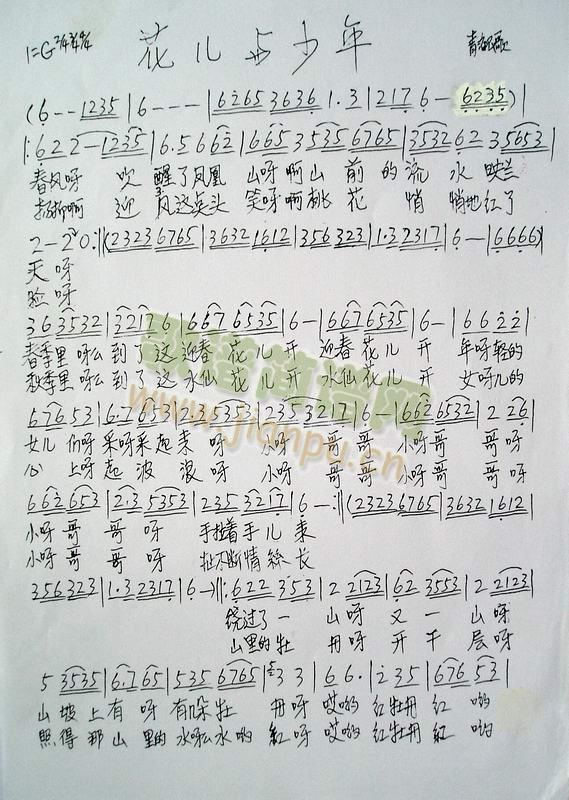 花儿与少年
1=G 2/4 3/4 4/4
(6 - - 1235 | 6 - - - | 6265 3636 1·3 | 217 6 - 6235) |
|: 622 2-1235 | 6·5 662 | 6653 535 6765 | 3532 62 35653 |
春风呀 吹 醒了凤凰 山呀啊山 前 的流 水 映兰
杨柳啊 迎 风这点头 笑呀啊桃 花 悄 悄地红了
2-20 :|| (2323 6765 | 3632 1612 | 356 323 | 1·3 2317 | 6 - | 6666)
天 呀
脸 呀
36 3532 | 3217 6 | 667 6535 | 6 - | 667 6535 | 6 - | 66 22 |
春季里 呀么 到了这 迎春 花儿 开 迎春 花儿 开 年呀轻的
秋季里 呀么 到了这 水仙 花儿 开 水仙 花儿 开 女呀儿的
676 53 | 6·7 653 | 2·35 353 | 235 3217 | 6 - | 662 6532 | 2 26 |
女儿 们呀 采呀采起来 呀 小呀 哥 哥 小呀哥 哥呀
心 上呀 起 波 浪 呀 小呀 哥 哥 小呀哥 哥呀
662 653 | 2·3 5353 | 235 3217 | 6 - :|| (2323 6765 | 3632 1612 |
小呀 哥 哥 呀 手拉着手 儿 来
小呀 哥 哥 呀 扯不断情 絲 长
356 323 | 1·3 2317 | 6 -) ||: 622 353 | 2 2123 | 62 3553 | 2 2123 |
绕过了一 山呀 又 一 山呀
山里的牡 丹呀 开 千 层呀
5 3535 | 6·7 65 | 535 6765 | 3 3 | 66· | 2 35 | 676 53 |
山 坡 上有 呀 有朵 牡 丹呀 哎哟 红牡丹 红 哟
照 得 那山 里的 水呀么水哟 紅呀 哎哟 红牡丹 紅 哟
歌谱简谱网
www.jianpu.cn